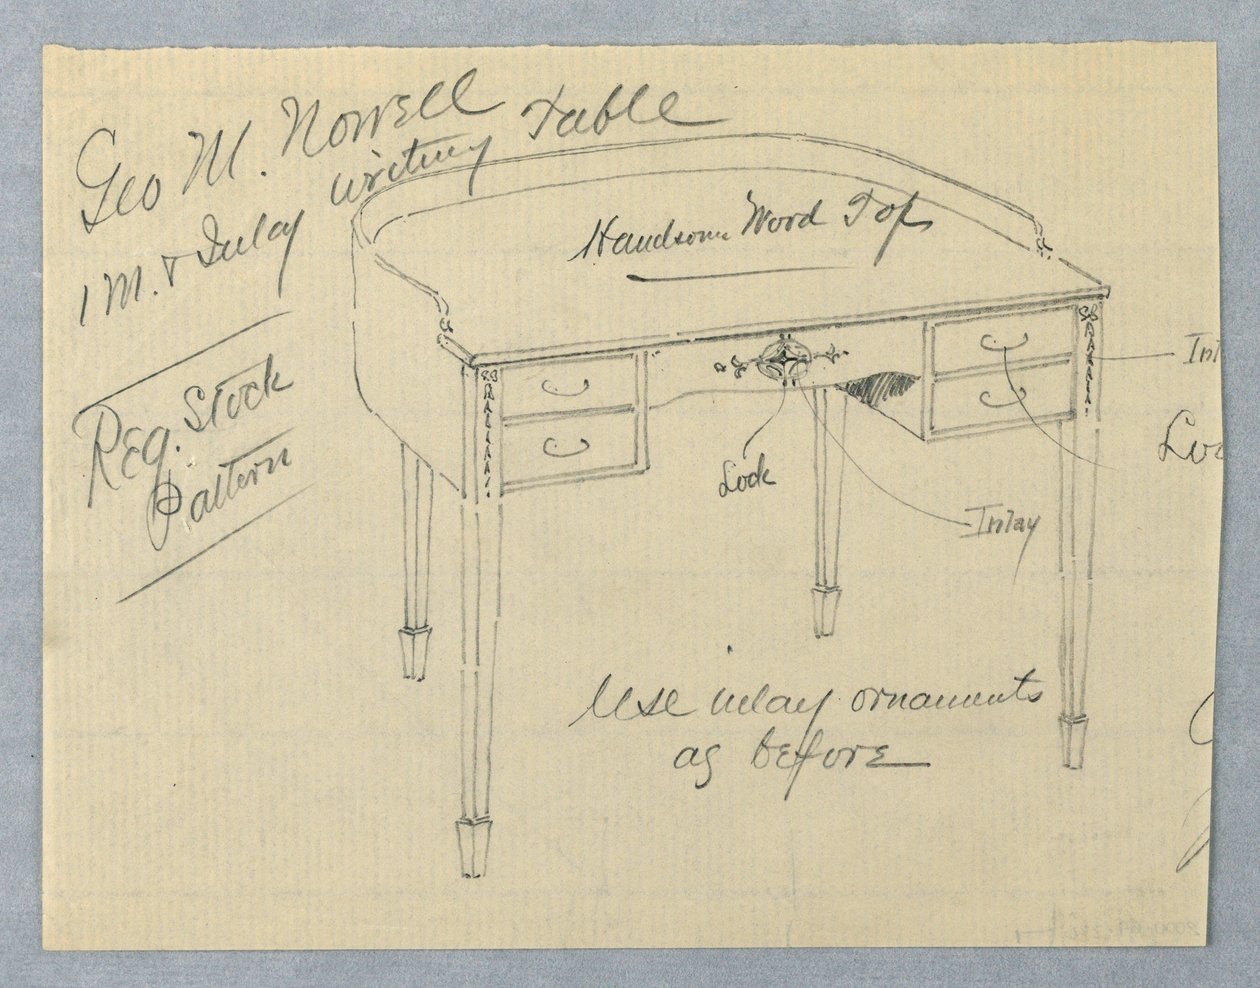 Geo M. Nowell
1 M. & Inlay writing Table
Reg. Stock
Pattern
Handsome Wood Top
Lock
Inlay
Use inlay ornaments
as before